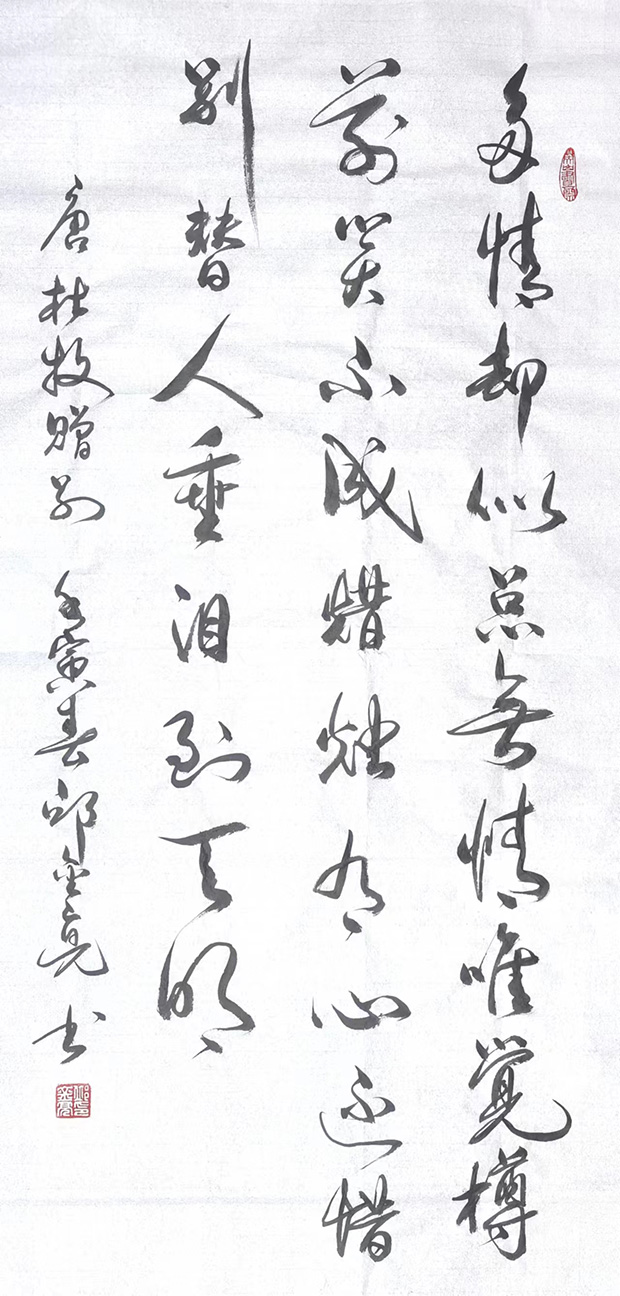 多情却似总无情唯觉樽
前笑不成蜡烛有心还惜
别替人垂泪到天明
唐杜牧赠别 壬寅春邱金亮书